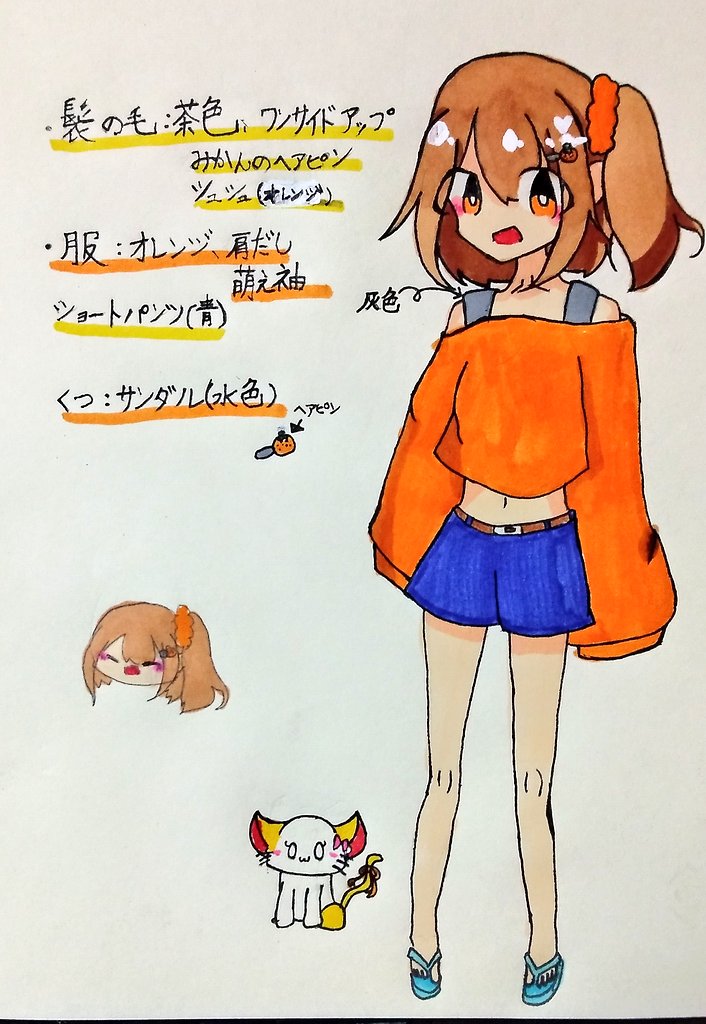 ・髪の毛:茶色、ワンサイドアップ
みかんのヘアピン
シュシュ(オレンジ)
・服:オレンジ、肩だし
萌え袖
灰色
ショートパンツ(青)
くつ:サンダル(水色)
ヘアピン